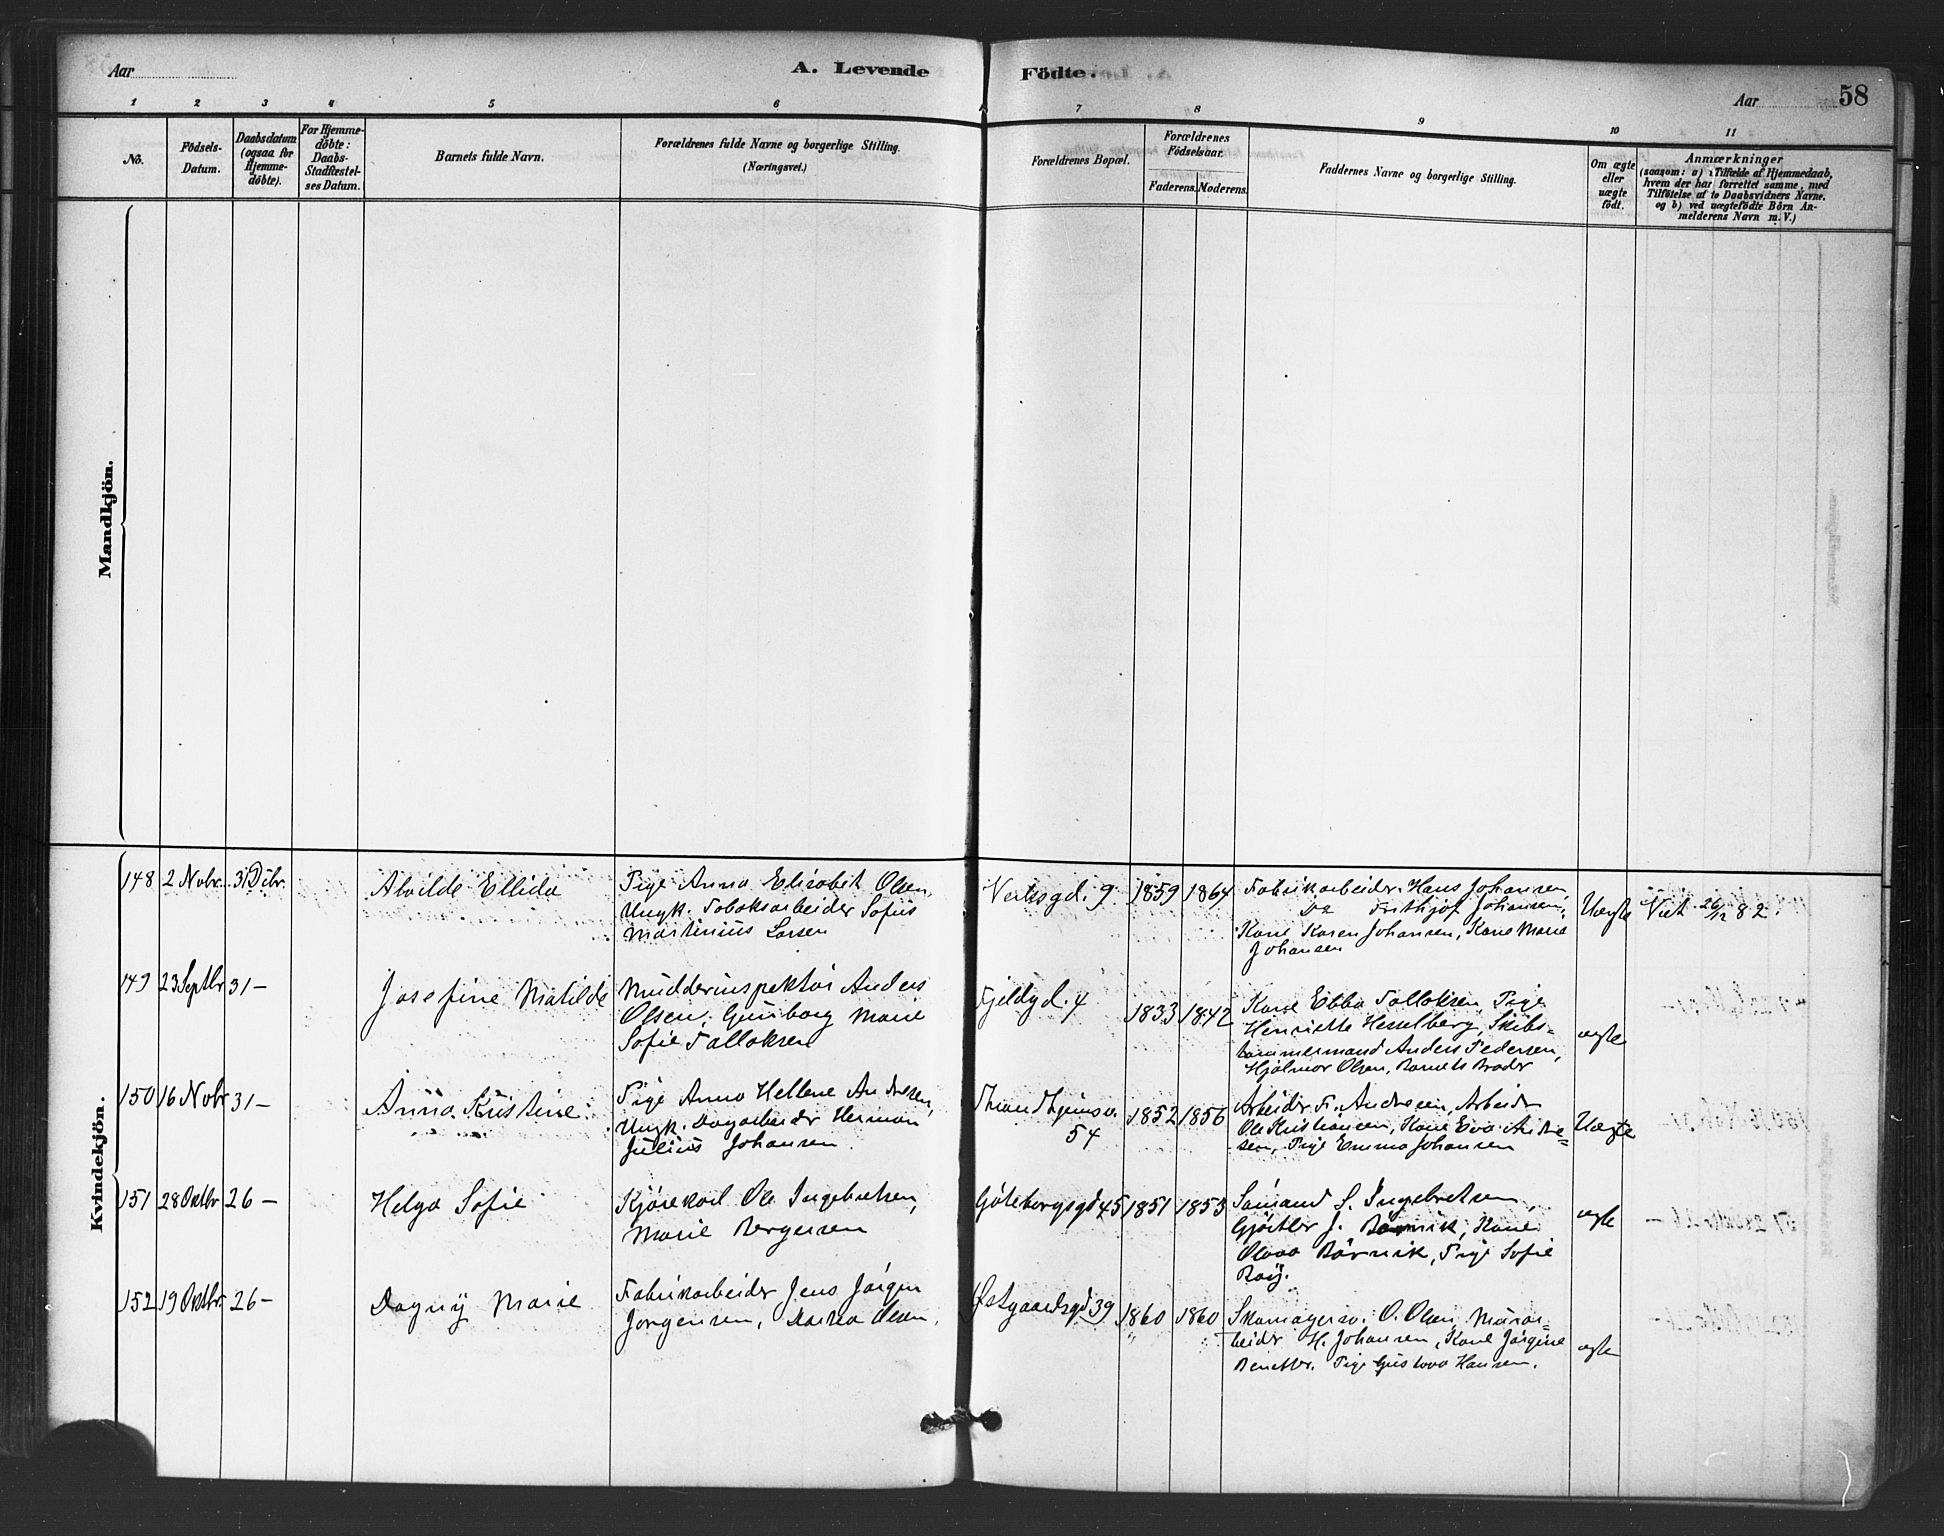 Aar
A. Levende Födte.
Aar
58
1 2 3 4 5 6 7 8 9 10 11
No.
Födsels-
Datum.
Daabsdatum
(ogsaa for
Hjemme-
döbte).
For Hjemme-
döbte:
Daabs-
Stadfæstel-
ses Datum.
Barnets fulde Navn.
Forældrenes fulde Navne og borgerlige Stilling.
(Næringsvei.)
Forældrenes Bopæl.
Forældrenes
Födselsaar.
Faderens. Moderens.
Faddernes Navne og borgerlige Stilling.
Om ægte
eller
uægte
födt.
Anmærkninger
(saasom: a) i Tilfælde af Hjemmedaab,
hvem der har forrettet samme, med
Tilföielse af to Daabsvidners Navne.
og b) ved uægtefödte Börn An-
melderens Navn m. V.)
Mandkjön.
Kvindekjön.
148 2 Novbr. 31 Dcbr.
Alvilde Ellida
Pige Anna Elisabet Olsen,
Ungk. Tobaksarbeider Sofus
Martinius Larsen
Verksgd. 9
1859 1864
Fabrikarbeider Hans Johansen,
Do Frithjof Johansen,
Kone Karen Johansen, Kone Marie
Johansen
Uægte
Viet 26/12 82.
149 23 Septbr 31 –
Josefine Matilde
Mudderinspektör Anders
Olsen, Gunborg Marie
Sofie Falloksen
Fjeldgd. 4
1833 1842
Kone Ebba Falloksen, Pige
Henriette Hesselberg, Skibs-
tømmermand Anders Pedersen,
Hjalmar Olsen, Barnets Broder
ægte
150 16 Novbr 31 –
Anna Kristine
Pige Anna Hellene Andresen,
Ungk. Dagarbeider Herman
Julius Johansen
Throndhjemsv.
54
1852 1856
Arbeider Fr. Andresen, Arbeider
Ole Kristiansen, Kone Eva Andre-
sen, Pige Emma Johansen
Uægte
151 28 Oktbr 26 –
Helga Sofie
Kjörekarl Ole Ingebretsen,
Marie Bergersen
Göteborgsgd 45
1851 1853
Sömand S. Ingebretsen,
Gjörtler J. Börnik, Kone
Olava Börnik, Pige Sofie
ægte
152 19 Oktbr. 26 –
Dagny Marie
Fabrikarbeider Jens Jörgen
Jörgensen, Olsen.
Østgaardsgd 39
1860 1860
Skomagersv. O. Olsen, Murar-
beider H. Johansen, Kone Jörgine
Pige Gustava Hansen.
ægte